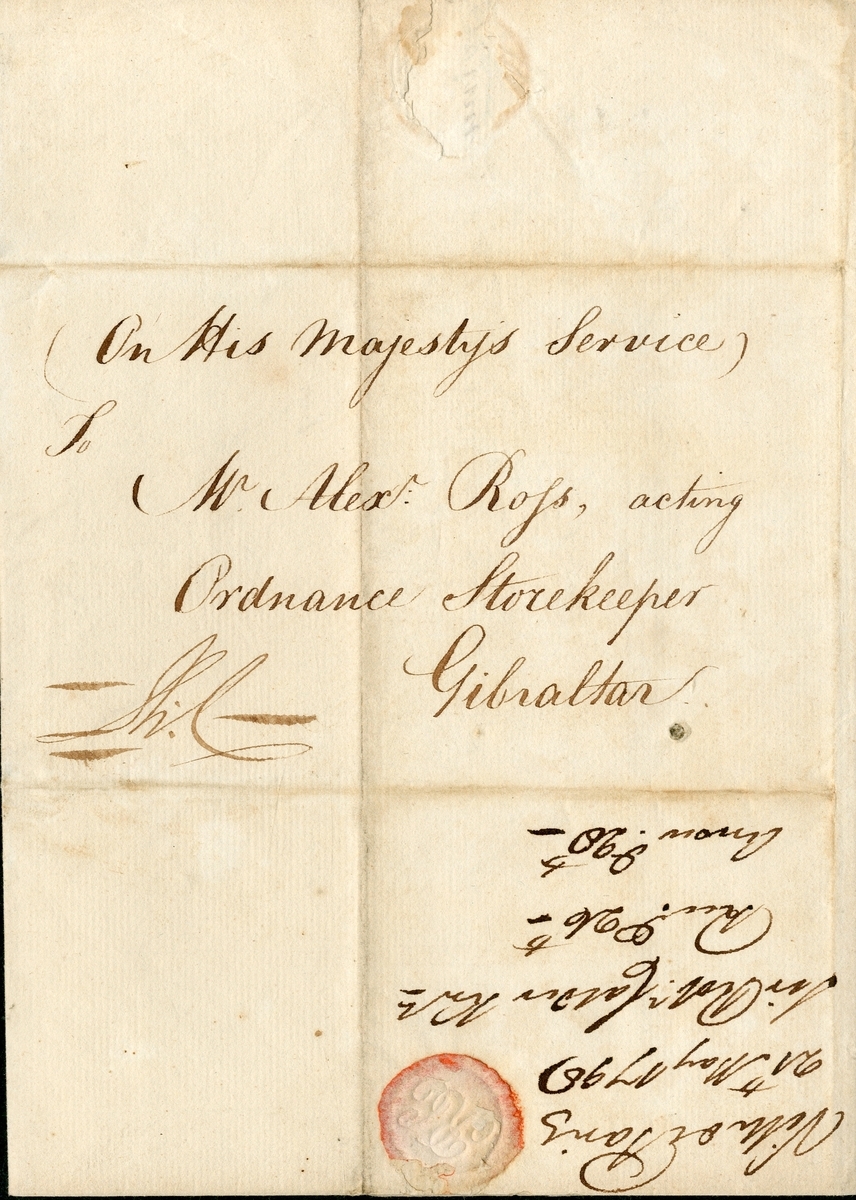 (On His Majestys Service)
To
Mr. Alexr. Ross, acting
Ordnance Storekeeper
Gibraltar
Ville de Paris
21st May 1798
Sir Robt. Calder Knt.
Recd. 26th
Answd. 28th